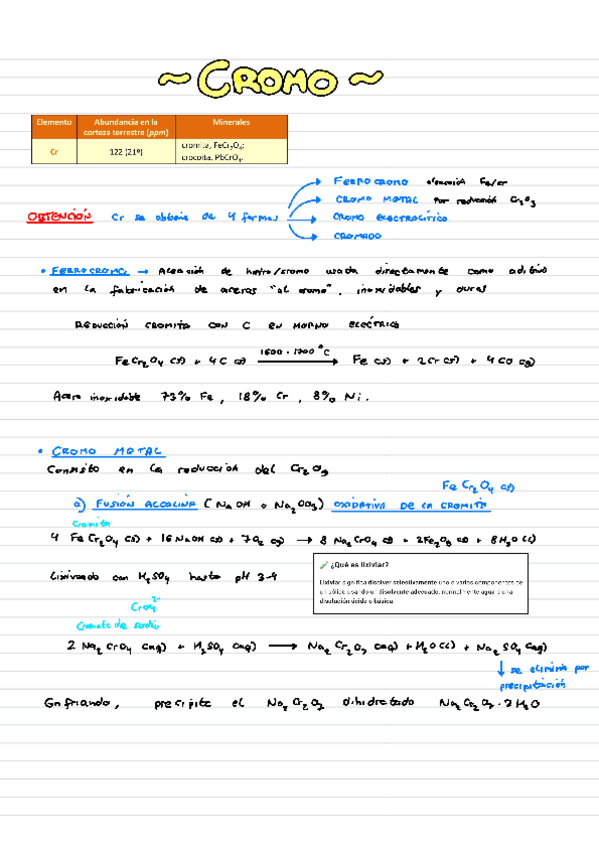 ~ CROMO ~
Elemento Abundancia en la corteza terrestre (ppm) Minerales
Cr 122 (21º) cromita, FeCr₂O₄; crocoita, PbCrO₄.
FERROCROMO aleación Fe/Cr
CROMO METAL por reducción Cr₂O₃
OBTENCIÓN Cr se obtiene de 4 formas
CROMO ELECTROLÍTICO
CROMADO
• FERROCROMO → Aleación de hierro/cromo usada directamente como aditivo
en la fabricación de aceros "al cromo", inoxidables y duros
REDUCCIÓN CROMITA CON C EN HORNO ELÉCTRICO
FeCr₂O₄ (s) + 4C (s) 1600-1700 °C → Fe (s) + 2Cr (s) + 4CO (g)
Acero inoxidable 73% Fe, 18% Cr, 8% Ni.
• CROMO METAL
Consiste en la reducción del Cr₂O₃
FeCr₂O₄ (s)
a) FUSIÓN ALCALINA (NaOH o Na₂CO₃) OXIDATIVA DE LA CROMITA
Cromita
4 FeCr₂O₄ (s) + 16 NaOH (s) + 7O₂ (g) → 8 Na₂CrO₄ (s) + 2Fe₂O₃ (s) + 8H₂O (l)
¿Qué es lixiviar?
Lixiviar significa disolver selectivamente uno o varios componentes de
un sólido usando un disolvente adecuado, normalmente agua o una
disolución ácida o básica.
Lixiviando con H₂SO₄ hasta pH 3-4
CrO₄²⁻
Cromato de sodio
2 Na₂CrO₄ (aq) + H₂SO₄ (aq) → Na₂Cr₂O₇ (aq) + H₂O (l) + Na₂SO₄ (aq)
↓ se elimina por
precipitación
Enfriando, precipita el Na₂Cr₂O₇ dihidratado Na₂Cr₂O₇·2H₂O